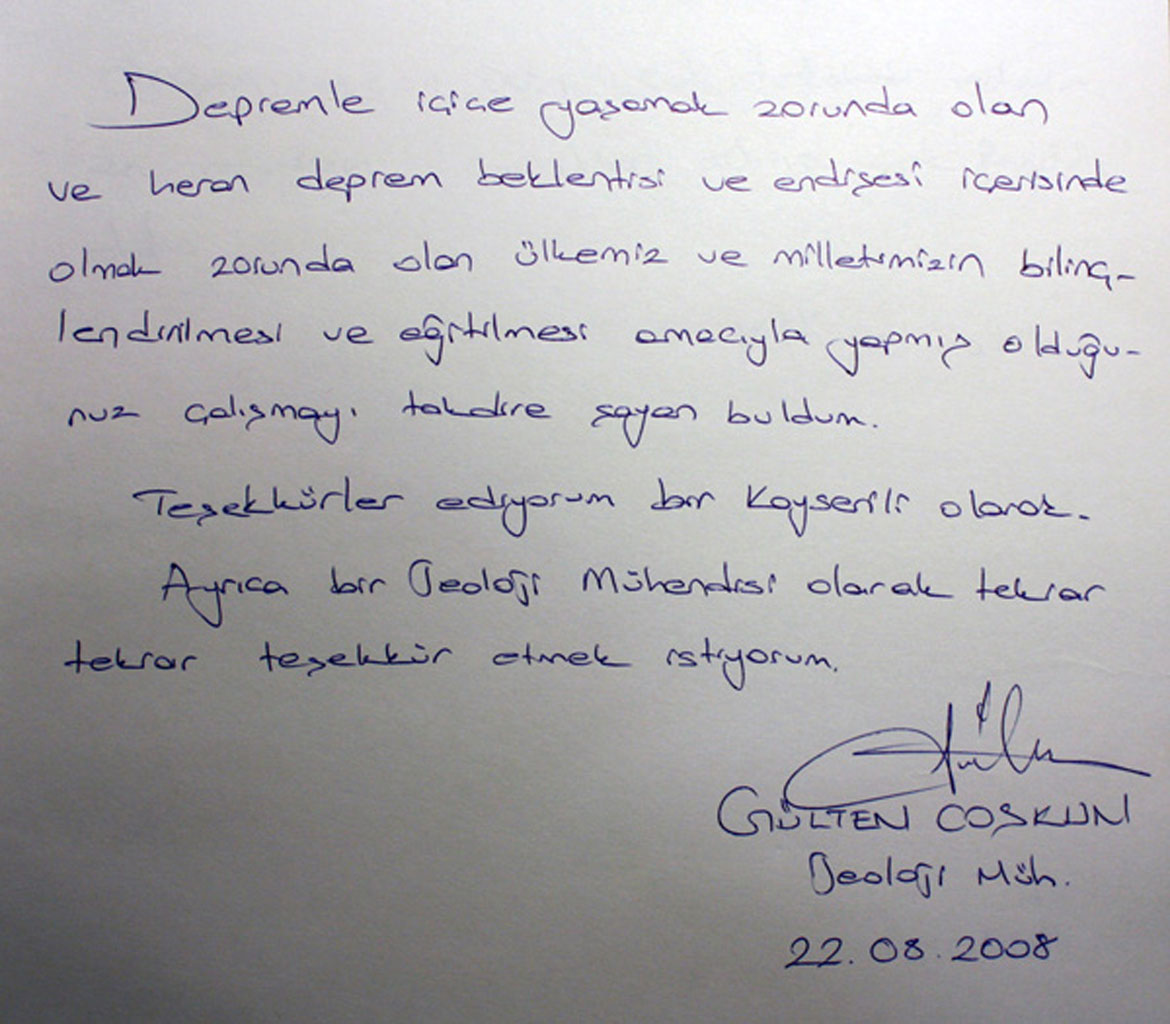 Depremle içiçe yaşamak zorunda olan
ve heran deprem beklentisi ve endişesi içerisinde
olmak zorunda olan ülkemiz ve milletimizin bilinç-
lendirilmesi ve eğitilmesi amacıyla yapmış olduğu-
nuz çalışmayı takdire şayan buldum.
Teşekkürler ediyorum bir Kayserili olarak.
Ayrıca bir Jeoloji Mühendisi olarak tekrar
tekrar teşekkür etmek istiyorum.
GÜLTEN COŞKUN
Jeoloji Müh.
22.08.2008